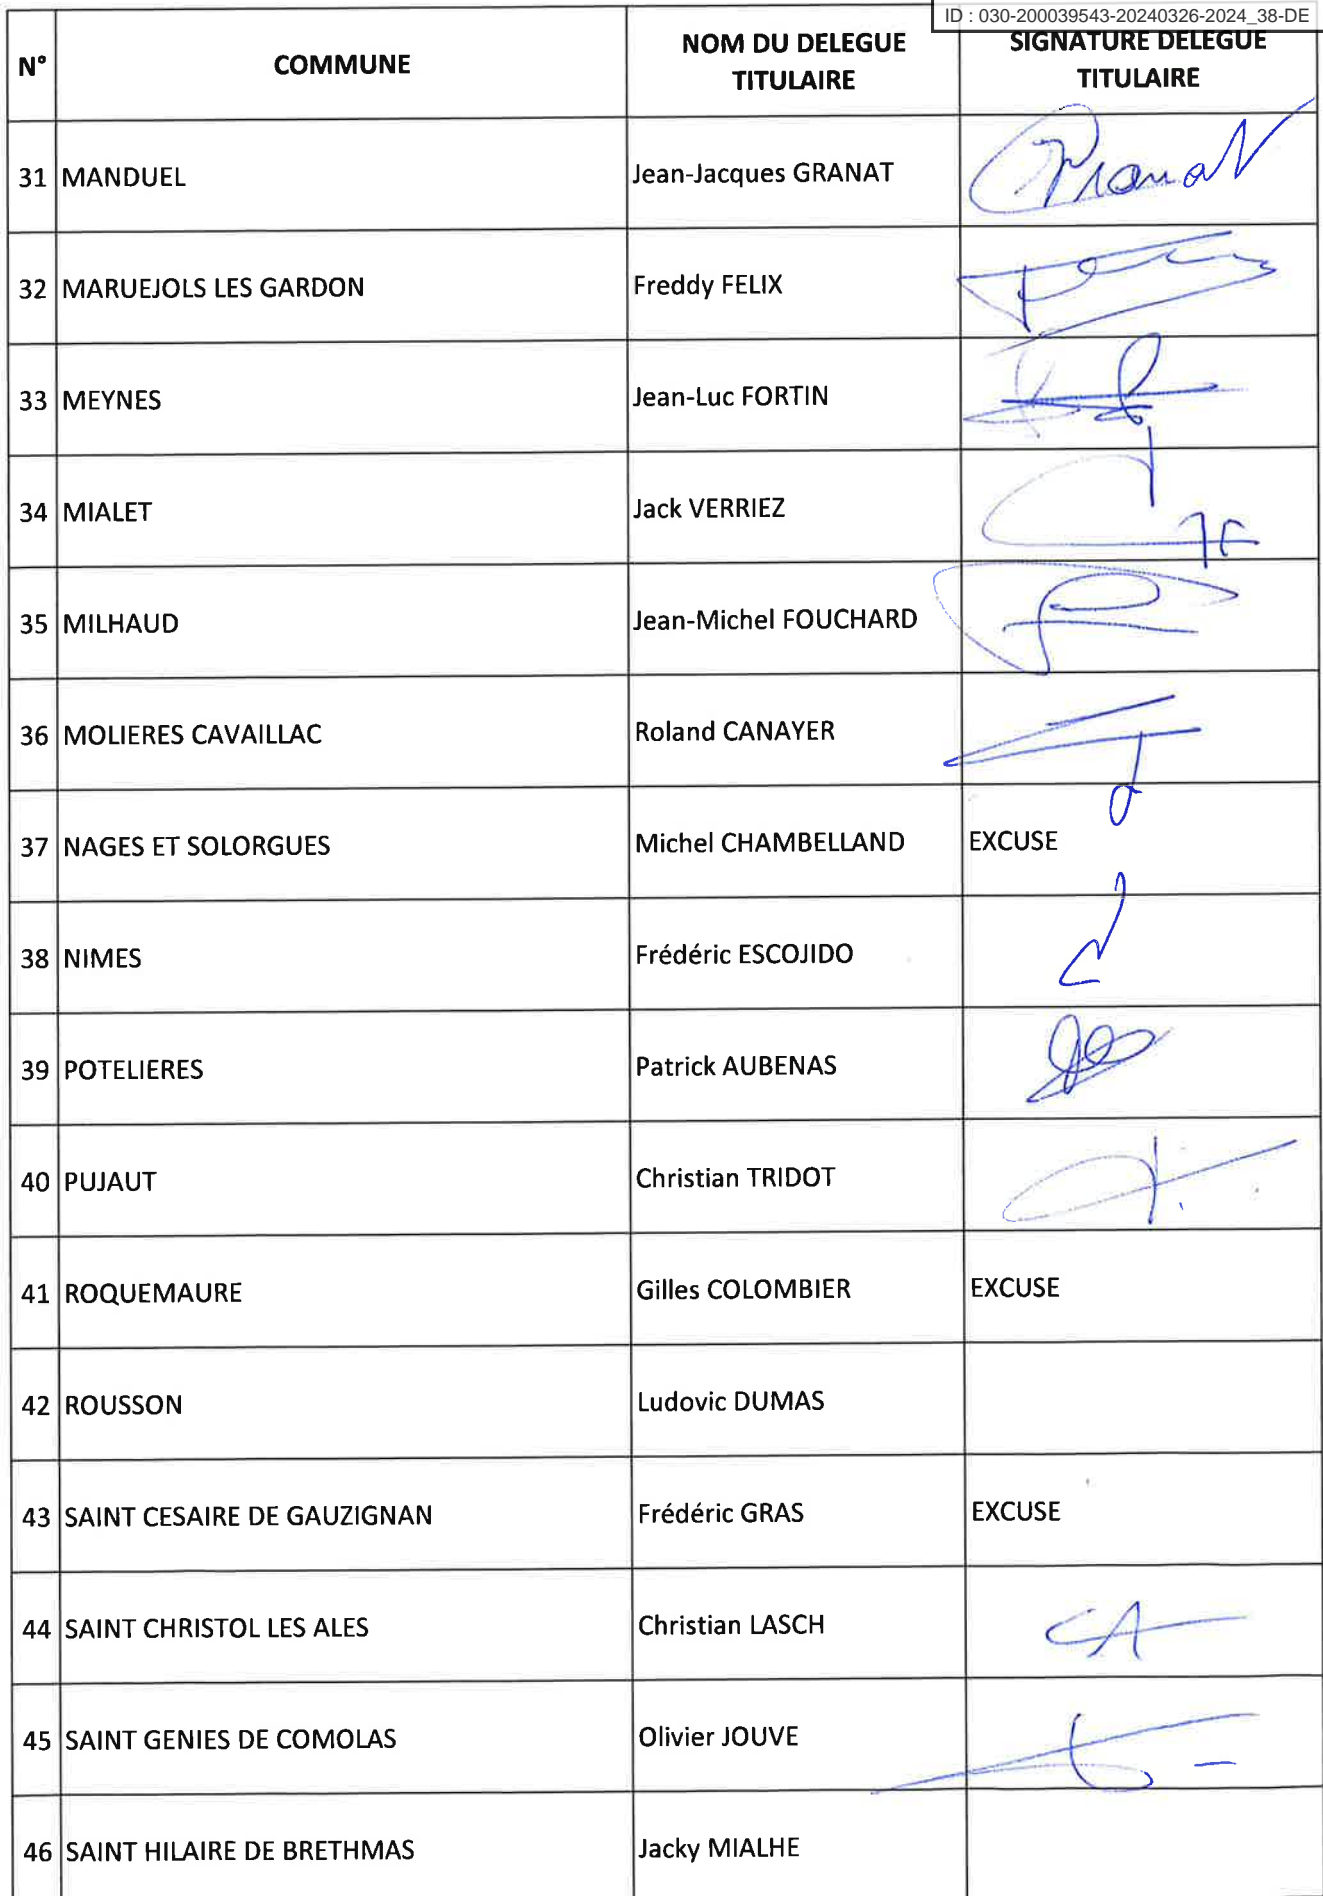 ID : 030-200039543-20240326-2024_38-DE
N° COMMUNE NOM DU DELEGUE TITULAIRE SIGNATURE DELEGUE TITULAIRE
31 MANDUEL Jean-Jacques GRANAT Granat
32 MARUEJOLS LES GARDON Freddy FELIX
33 MEYNES Jean-Luc FORTIN
34 MIALET Jack VERRIEZ
35 MILHAUD Jean-Michel FOUCHARD
36 MOLIERES CAVAILLAC Roland CANAYER
37 NAGES ET SOLORGUES Michel CHAMBELLAND EXCUSE
38 NIMES Frédéric ESCOJIDO
39 POTELIERES Patrick AUBENAS
40 PUJAUT Christian TRIDOT
41 ROQUEMAURE Gilles COLOMBIER EXCUSE
42 ROUSSON Ludovic DUMAS
43 SAINT CESAIRE DE GAUZIGNAN Frédéric GRAS EXCUSE
44 SAINT CHRISTOL LES ALES Christian LASCH
45 SAINT GENIES DE COMOLAS Olivier JOUVE
46 SAINT HILAIRE DE BRETHMAS Jacky MIALHE